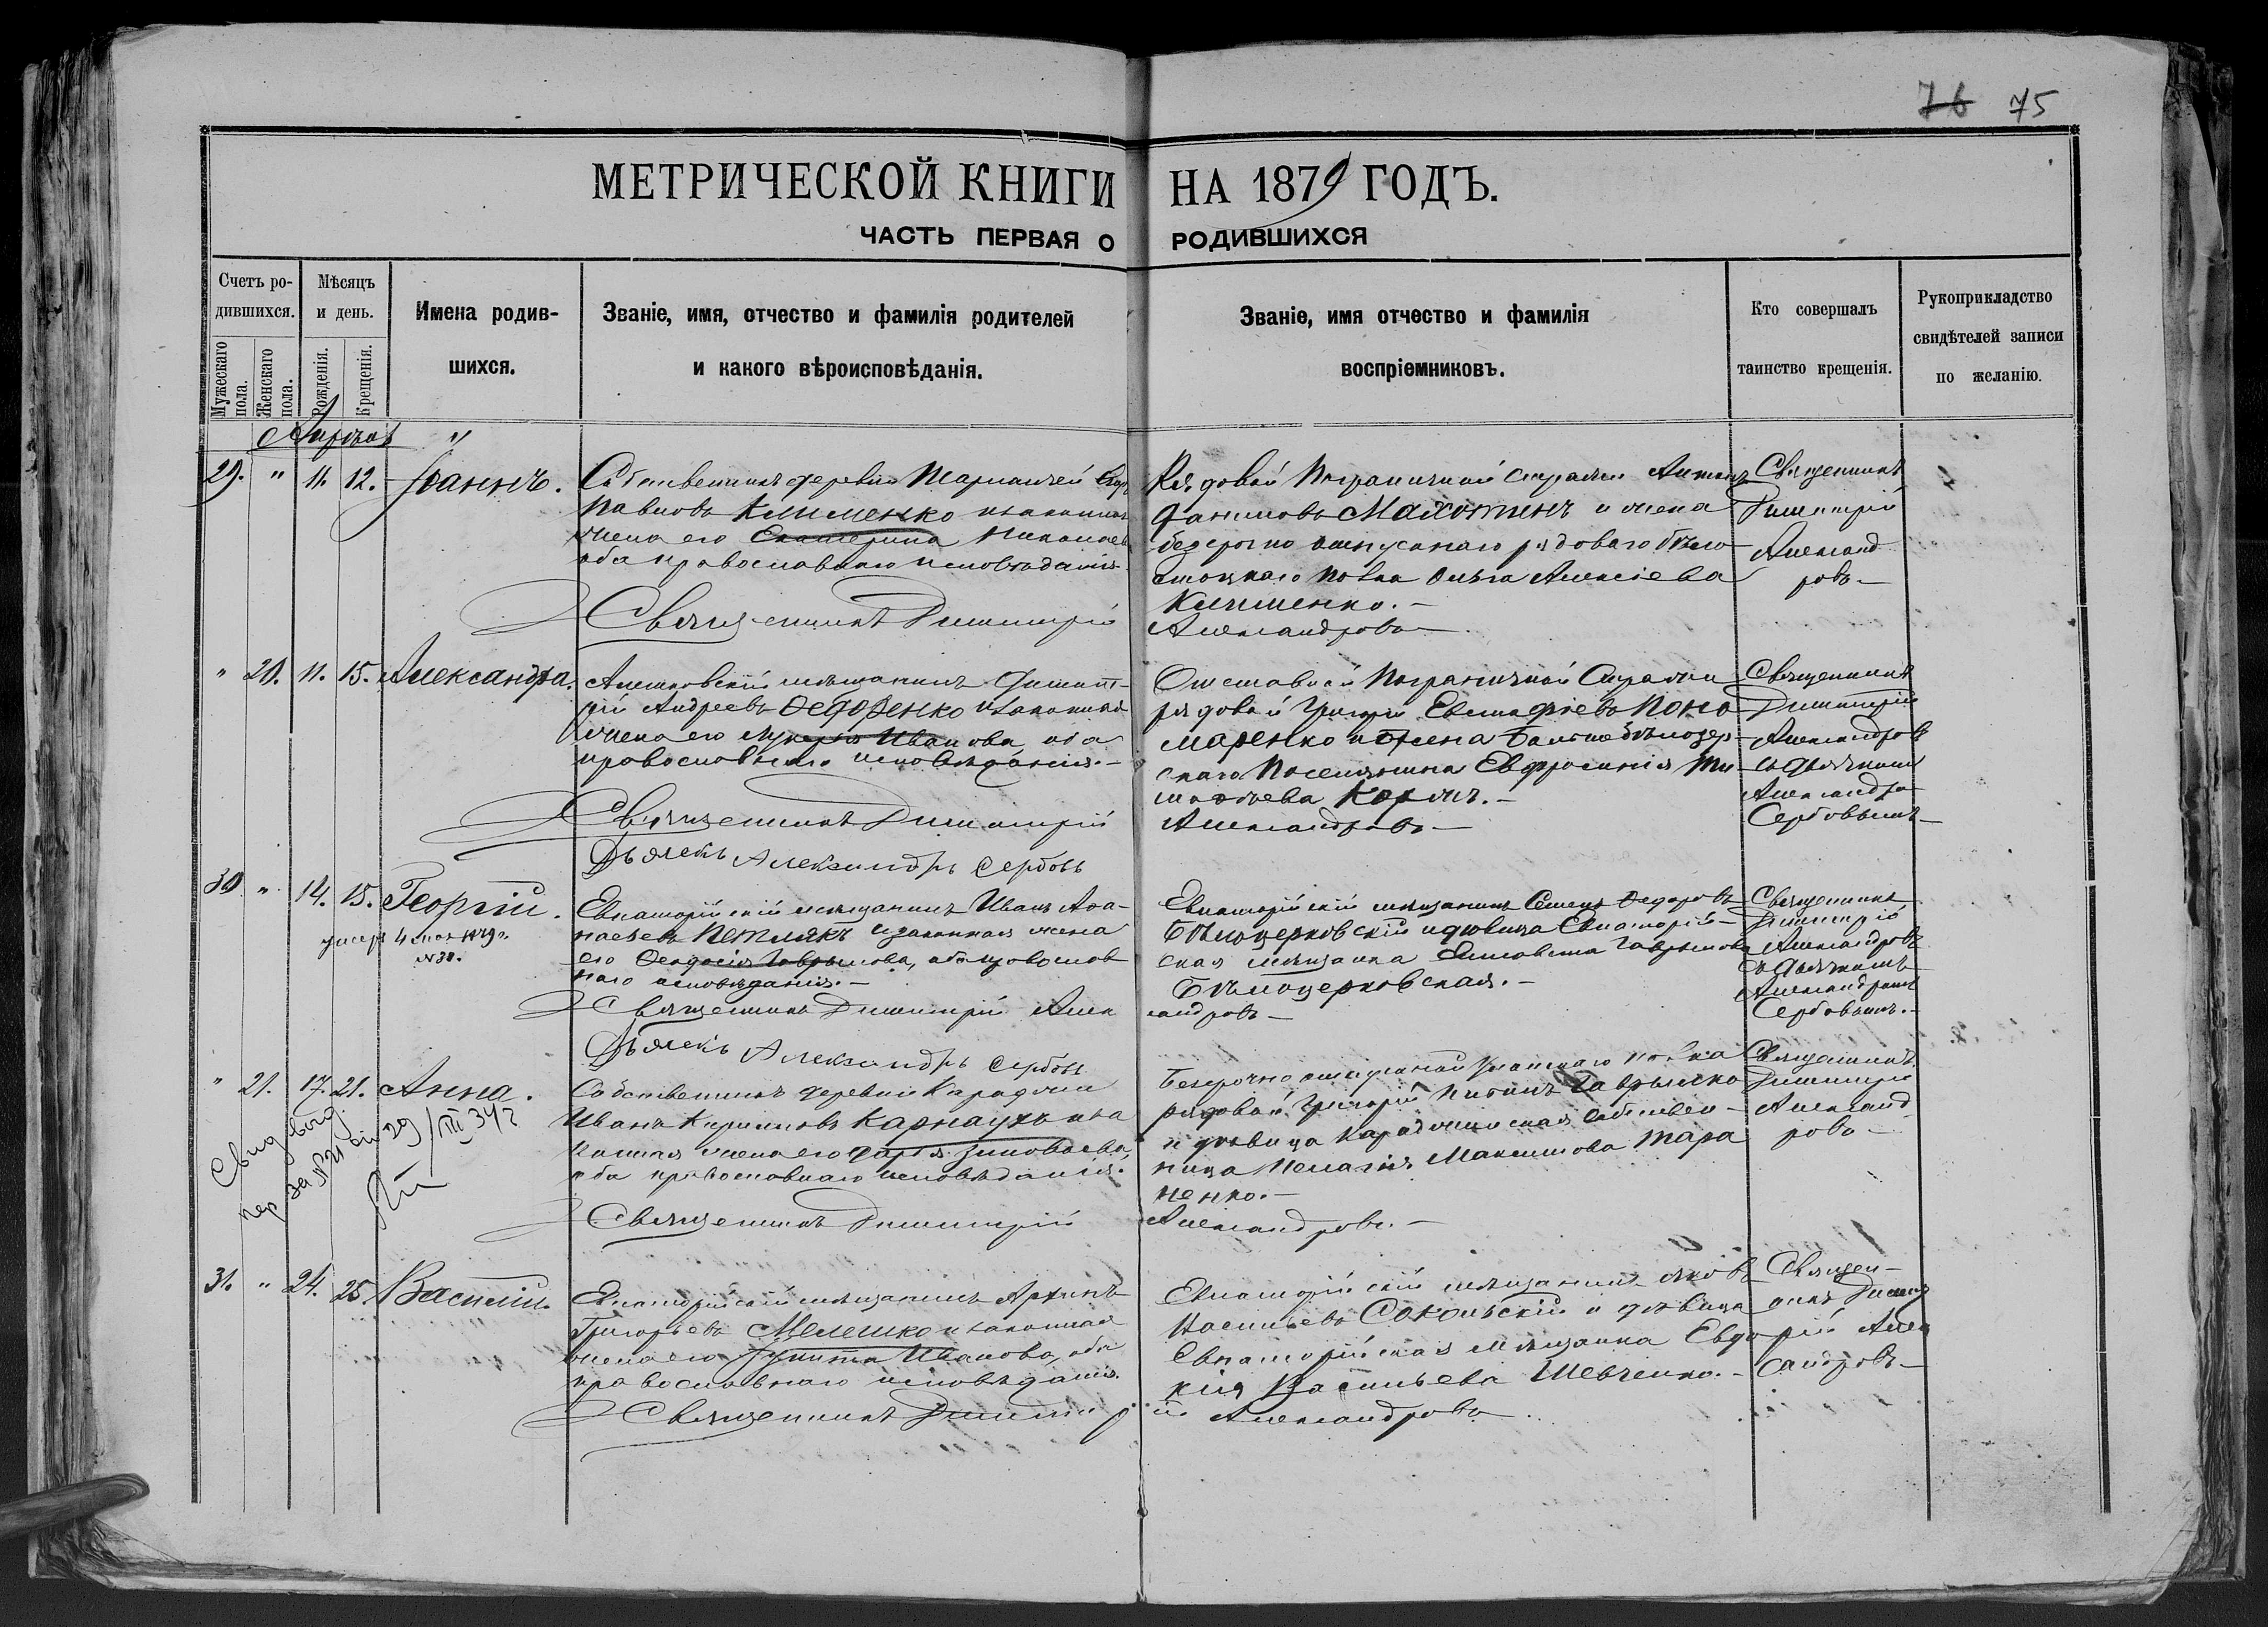 76 75
МЕТРИЧЕСКОЙ КНИГИ НА 1879 ГОДЪ.
ЧАСТЬ ПЕРВАЯ О РОДИВШИХСЯ
Счетъ ро-
дившихся.
Мужескаго пола.
Женскаго пола.
Мѣсяцъ
и день.
Рожденія.
Крещенія.
Имена родив-
шихся.
Званіе, имя, отчество и фамилія родителей
и какого вѣроисповѣданія.
Званіе, имя отчество и фамилія
воспріемниковъ.
Кто совершалъ
таинство крещенія.
Рукоприкладство
свидѣтелей записи
по желанію.
29. " 11. 12. Іоаннъ.
Собственникъ деревни
Павловъ Клименко и законная
жена его Екатерина Николаева
оба православнаго исповѣданія.
Священникъ Димитрій
Рядовой Пограничной стражи Антонъ
Даниловъ Махотинъ и жена
безсрочно отпускнаго рядоваго Бѣло-
стоцкаго полка Ольга Алексіева
Клименко.-
Александровъ
Священникъ
Димитрій
Александ
ровъ-
" 20. 11. 15. Александра.
мѣщанинъ Димит-
рій Андреевъ Федоренко и законная
жена его Лукерья Иванова, оба
православнаго исповѣданія.-
Священникъ Димитрій
Дьячекъ Александръ Сербовъ
Отставной Пограничной Стражи
рядовой Григорій Евстафіевъ Поно
маренко и жена
скаго Поселянина Евфросинія Ти-
мофѣева Коржъ.-
Александровъ-
Священникъ
Димитрій
Александровъ
съ дьячкомъ
Александро
Сербовымъ-
30 " 14. 15. Георгій.
умеръ 4 мая 1879 г.
№ 38.
Евпаторійскій мѣщанинъ Иванъ Афа-
насьевъ Петлякъ и законная жена
его Феодосія Гаврилова, оба православ
наго исповѣданія.-
Священникъ Димитрій Алек
Дьячекъ Александръ Сербовъ
Евпаторійскій мѣщанинъ Семенъ Федоровъ
Бѣлоцерковскій и дѣвица Евпаторій-
ская мѣщанка Елисовета Гаврилова
Бѣлоцерковская.-
сандровъ-
Священникъ
Димитрій
Александровъ
съ дьячкомъ
Александромъ
Сербовымъ.-
" 21. 17. 21. Анна.
Свид. выд.
за № 21
Собственникъ деревни Караджи
Иванъ Кириловъ Карнаухъ и за
конная жена его Дарья Зиновьева,
оба православнаго исповѣданія.
Священникъ Димитрій
Безсрочно отпускной полка
рядовой Григорій Гаврилко
и дѣвица Караджинская собствен-
ница Пелагія Максимова Тара
ненко.-
Александровъ.-
Священникъ
Димитрій
Александ
ровъ-
31. " 24. 25. Василій.
Евпаторійскій мѣщанинъ Архипъ
Григорьевъ Мелешко и законная
жена его Іулитта Иванова, оба
православнаго исповѣданія.
Священникъ Димитр
Евпаторійскій мѣщанинъ Яковъ
Васильевъ Сокольскій и дѣвица
Евпаторійская мѣщанка Евдо
кія Васильева Шевченко.-
ій Александровъ
Священ-
никъ Димит
рій Алек
сандровъ-